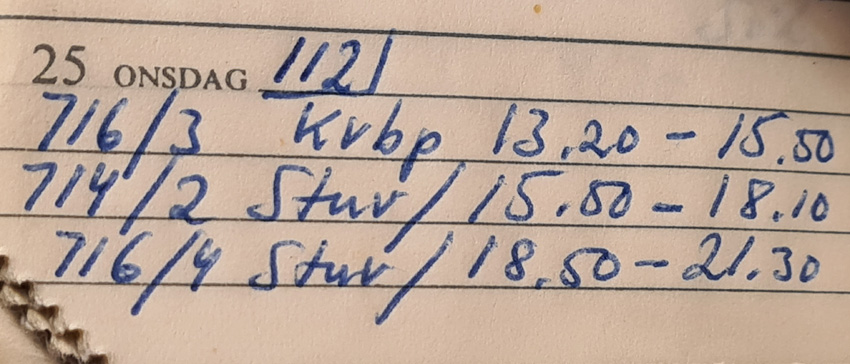 25 ONSDAG 1121
716/3 Kvbp 13.20 - 15.50
714/2 Stuv / 15.50 - 18.10
716/4 Stuv / 18.50 - 21.30